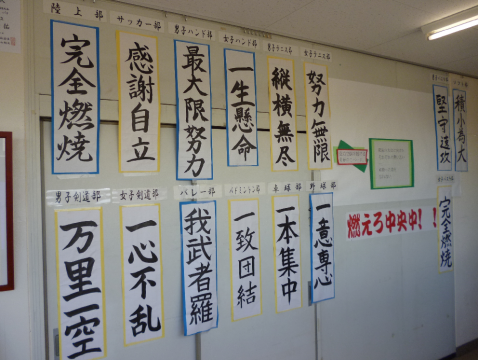 陸上部
完全燃焼
サッカー部
感謝自立
男子ハンド部
最大限努力
女子ハンド部
一生懸命
男子テニス部
縦横無尽
女子テニス部
努力無限
堅守速攻
積小為大
男子剣道部
万里一空
女子剣道部
一心不乱
バレー部
我武者羅
バドミントン部
一致団結
卓球部
一本集中
野球部
一意専心
燃えろ中央中!!
完全燃焼